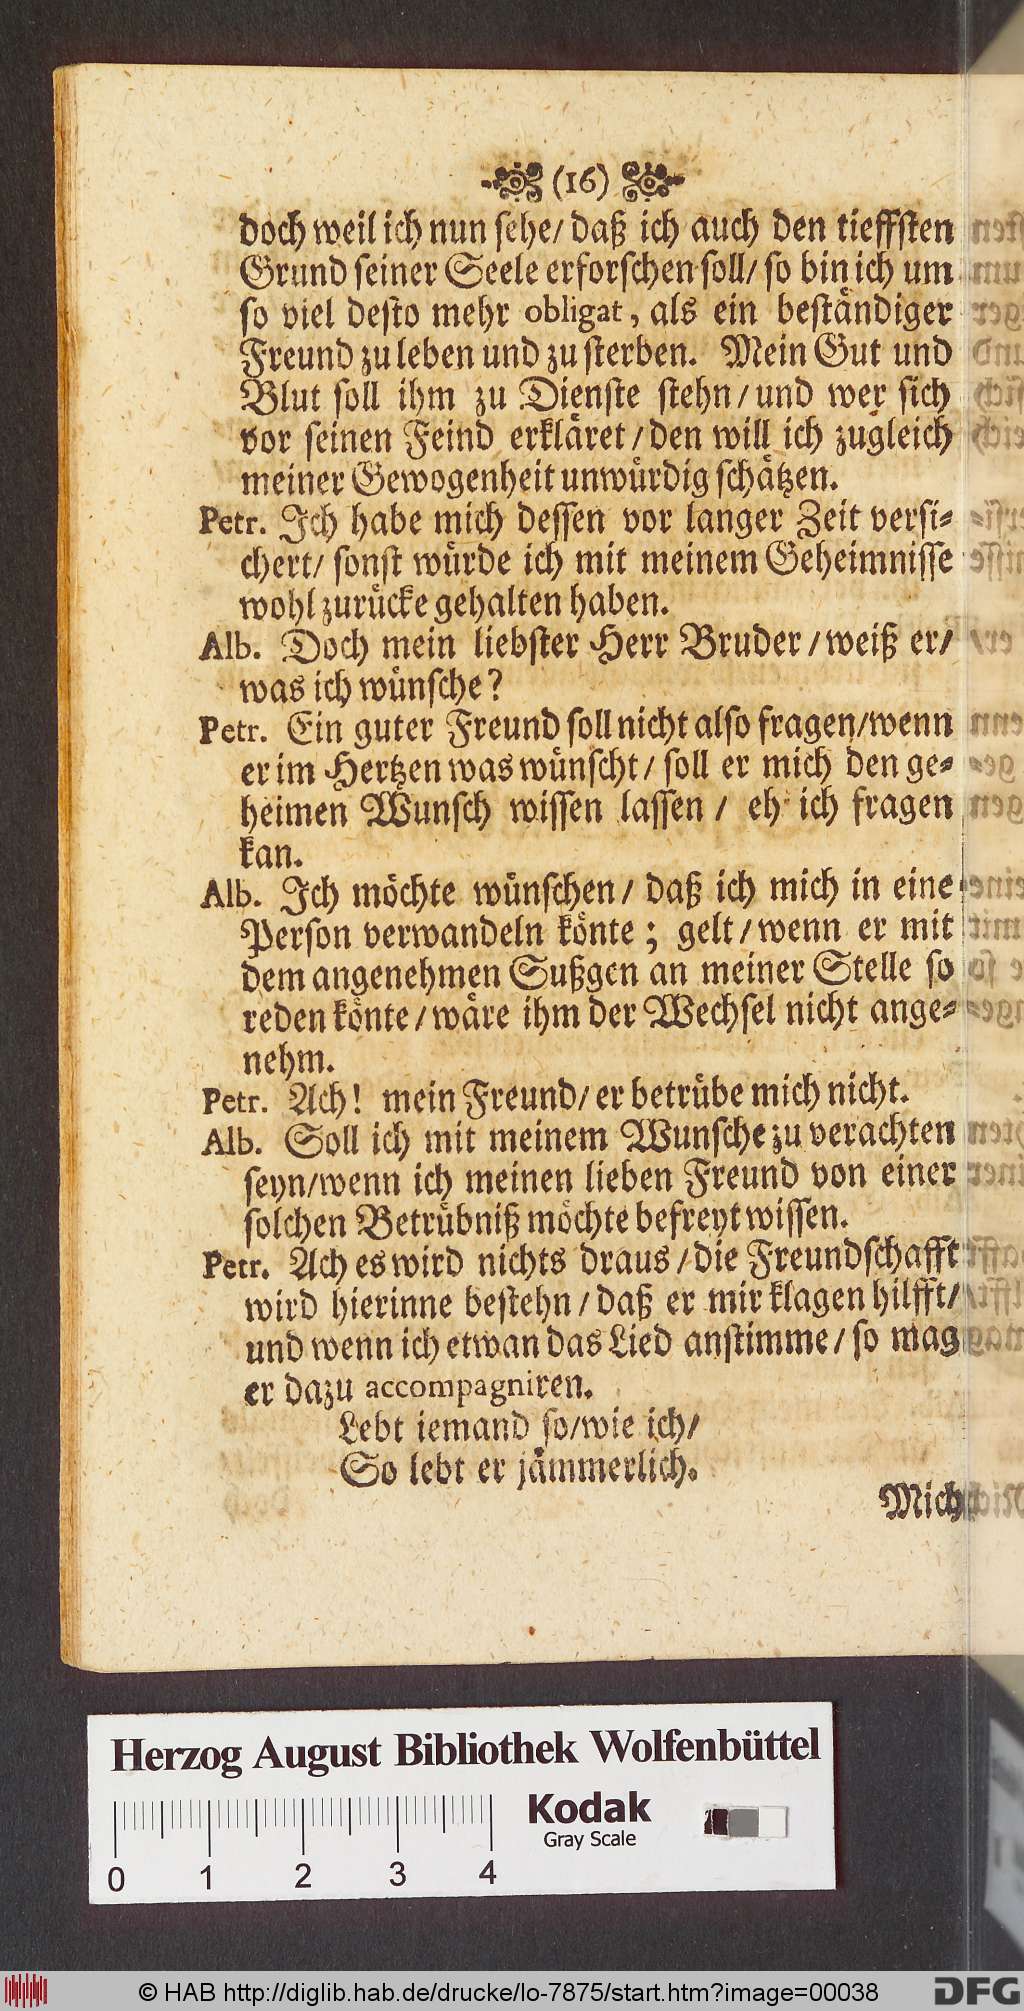 (16)
doch weil ich nun sehe/ daß ich auch den tieffsten
Grund seiner Seele erforschen soll/ so bin ich um
so viel desto mehr obligat, als ein beständiger
Freund zu leben und zu sterben. Mein Gut und
Blut soll ihm zu Dienste stehn/ und wer sich
vor seinen Feind erkläret/ den will ich zugleich
meiner Gewogenheit unwürdig schätzen.
Petr. Ich habe mich dessen vor langer Zeit versi⸗
chert/ sonst würde ich mit meinem Geheimnisse
wohl zurücke gehalten haben.
Alb. Doch mein liebster Herr Bruder/ weiß er/
was ich wünsche?
Petr. Ein guter Freund soll nicht also fragen/ wenn
er im Hertzen was wünscht/ soll er mich den ge⸗
heimen Wunsch wissen lassen/ eh ich fragen
kan.
Alb. Ich möchte wünschen/ daß ich mich in eine
Person verwandeln könte; gelt/ wenn er mit
dem angenehmen Sußgen an meiner Stelle so
reden könte/ wäre ihm der Wechsel nicht ange⸗
nehm.
Petr. Ach! mein Freund/ er betrübe mich nicht.
Alb. Soll ich mit meinem Wunsche zu verachten
seyn/ wenn ich meinen lieben Freund von einer
solchen Betrübniß möchte befreyt wissen.
Petr. Ach es wird nichts draus/ die Freundschafft
wird hierinne bestehn/ daß er mir klagen hilfft/
und wenn ich etwan das Lied anstimme/ so mag
er dazu accompagniren.
Lebt iemand so/ wie ich/
So lebt er jämmerlich.
Mich
Herzog August Bibliothek Wolfenbüttel
Kodak
Gray Scale
0 1 2 3 4
© HAB http://diglib.hab.de/drucke/lo-7875/start.htm?image=00038
DFG